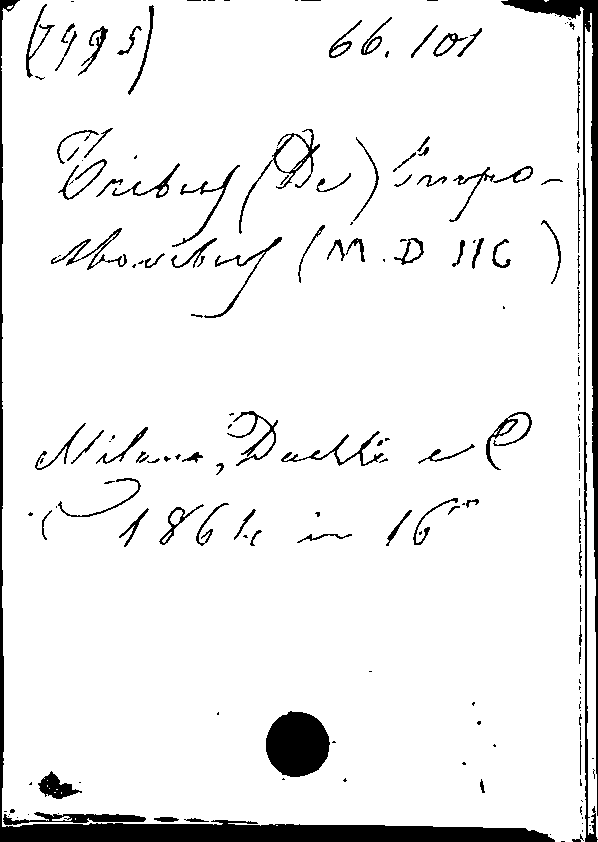 (7995) 66.101
Tribus (De) Impo-
storibus (M.D IIC)
Milano, Daelli e C
1864 in 16º